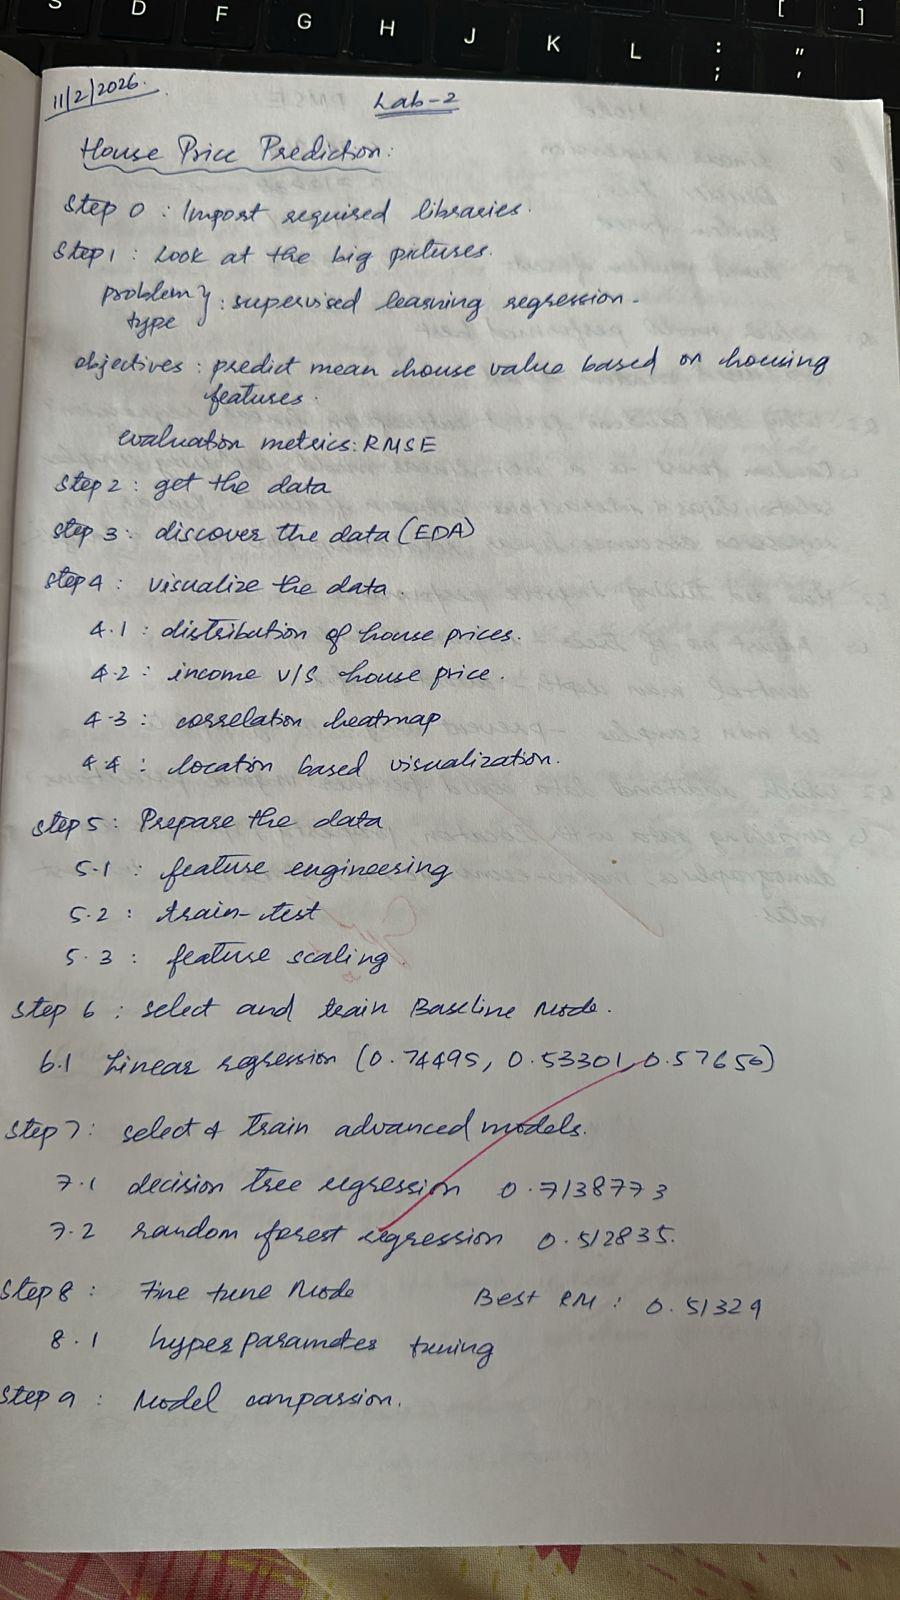 S D F G H J K L : ; " ' [ ]
11/2/2026.
Lab-2
House Price Prediction:
Step 0 : Import required libraries.
Step 1 : Look at the big pictures.
problem type } : supervised learning regression.
objectives : predict mean house value based on housing
features.
evaluation metrics: RMSE
Step 2 : get the data
step 3 : discover the data (EDA)
step 4 : visualize the data.
4.1 : distribution of house prices.
4.2 : income v/s house price.
4.3 : correlation heatmap
4.4 : location based visualization.
step 5 : Prepare the data
5.1 : feature engineering
5.2 : train-test
5.3 : feature scaling
Step 6 : select and train Baseline Mode.
6.1 Linear regression (0.74495, 0.53301, 0.57656)
Step 7 : select & train advanced models.
7.1 decision tree regression 0.7138773
7.2 random forest regression 0.512835.
Step 8 : Fine tune Mode Best RM : 0.51329
8.1 hyper parameter tuning
Step 9 : Model compassion.